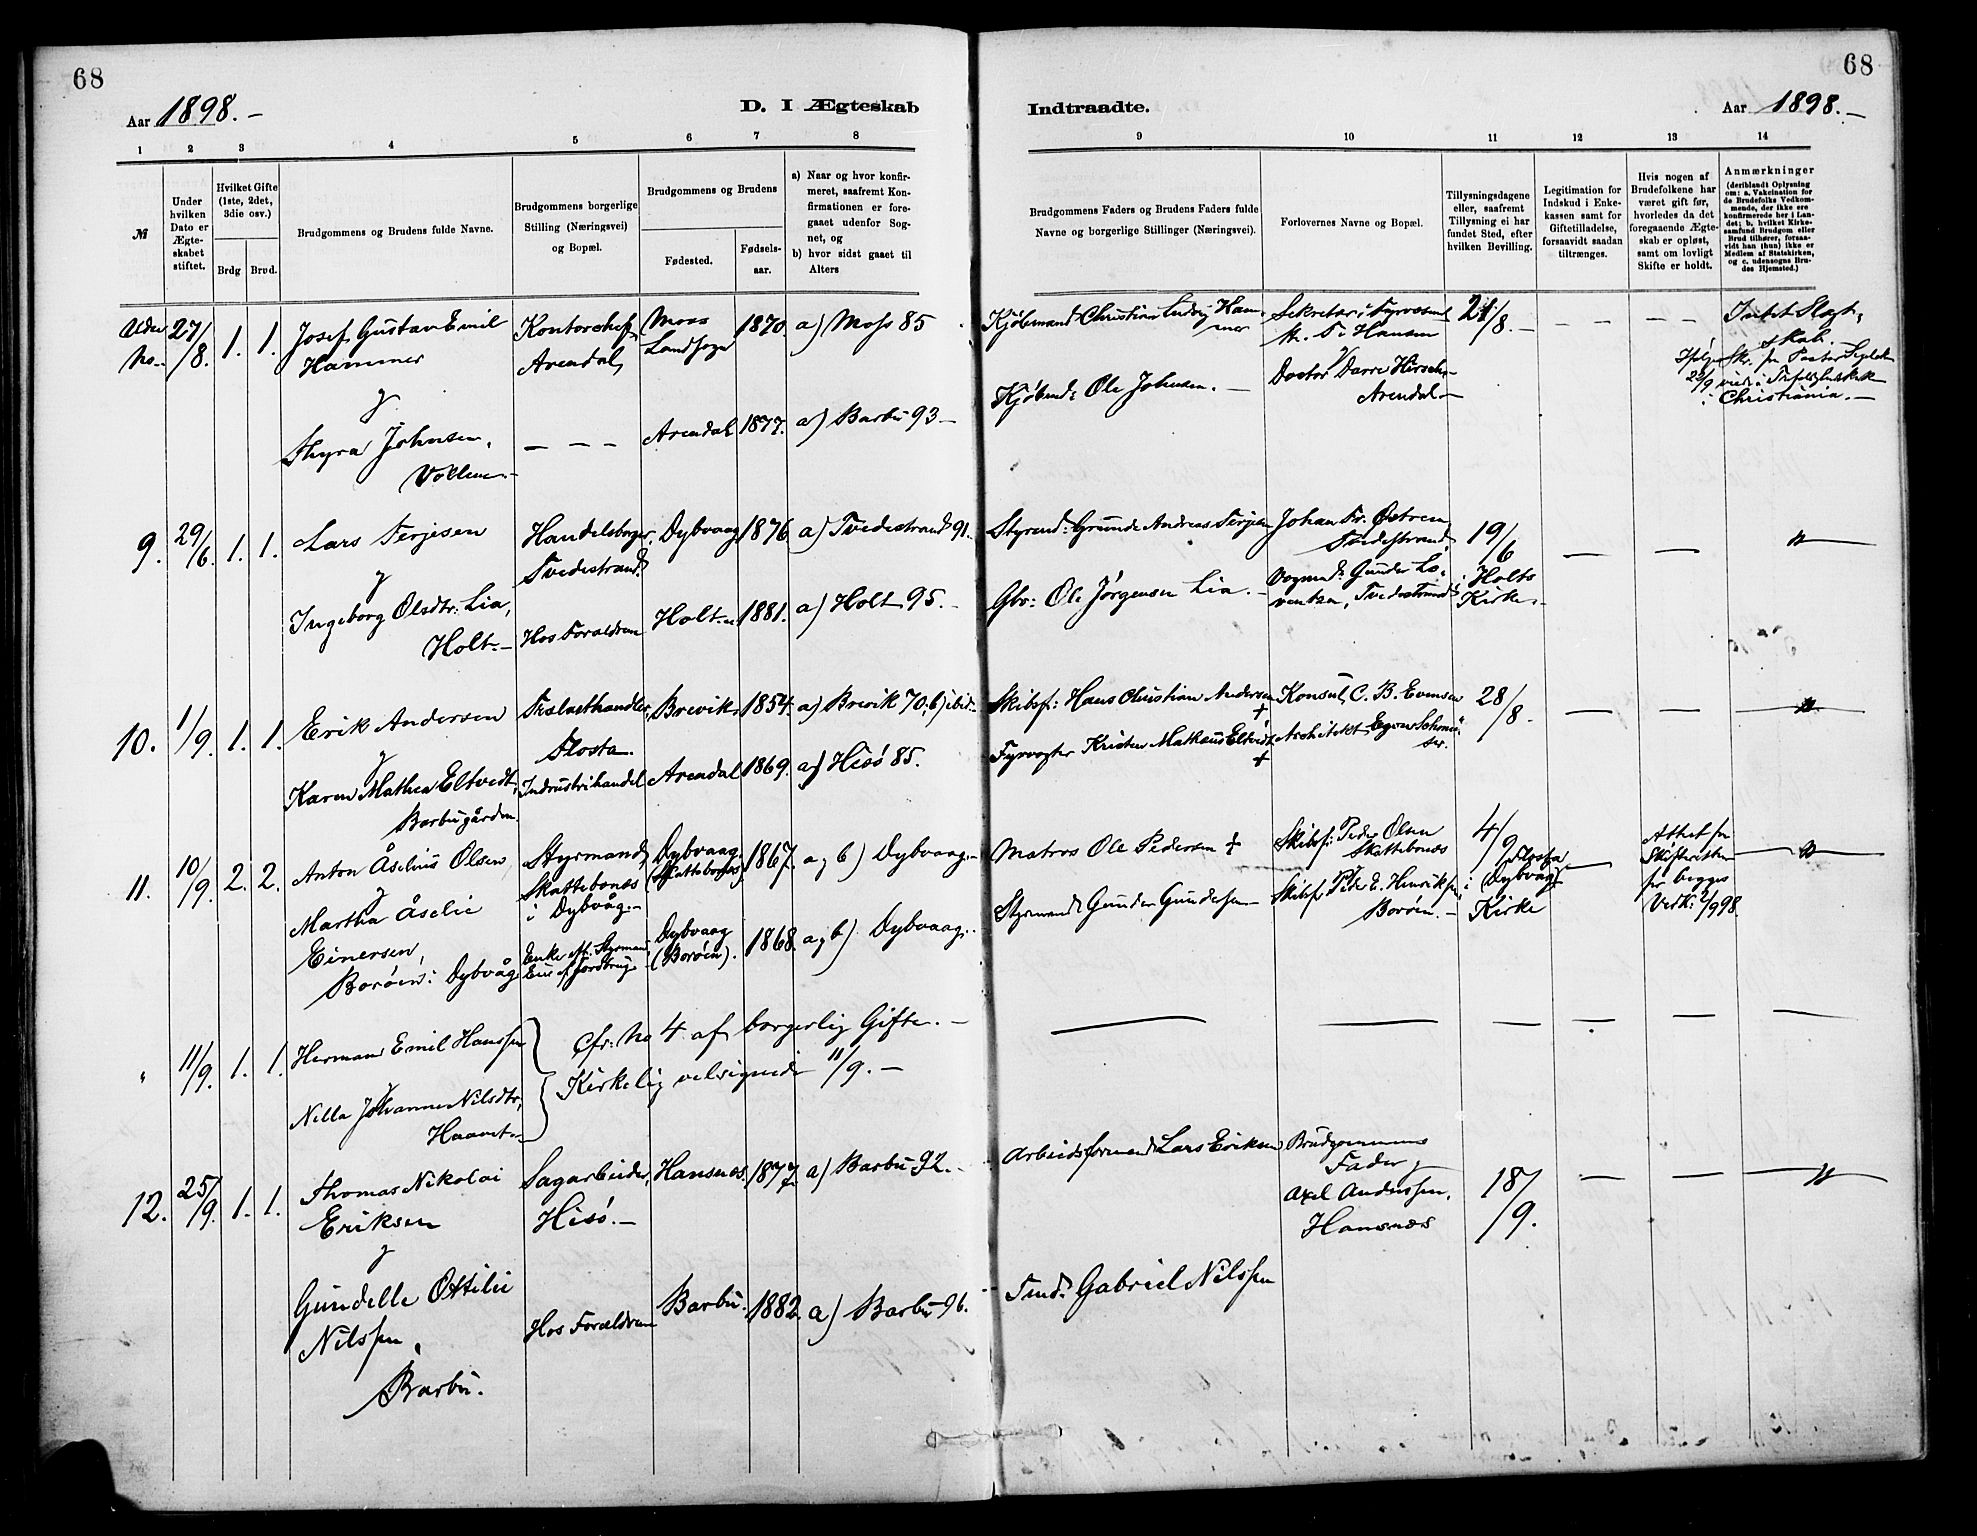 68
68
Aar 1898. –
D. I Ægteskab
Indtraadte.
Aar 1898. –
1 2 3 4 5 6 7 8 9 10 11 12 13 14
№
Under hvilken Dato er Ægteskabet stiftet.
Hvilket Gifte (1ste, 2det, 3die osv.)
Brdg Brud.
Brudgommens og Brudens fulde Navne.
Brudgommens borgerlige Stilling (Næringsvei) og Bopæl.
Brudgommens og Brudens
Fødested.
Fødsels-aar.
a) Naar og hvor konfirmeret, saafremt Konfirmationen er foregaaet udenfor Sognet, og
b) hvor sidst gaaet til Alters
Brudgommens Faders og Brudens Faders fulde Navne og borgerlige Stillinger (Næringsvei).
Forlovernes Navne og Bopæl.
Tillysningsdagene eller, saafremt Tillysning ei har fundet Sted, efter hvilken Bevilling.
Legitimation for Indskud i Enkekassen samt for Giftetilladelse, forsaavidt saadan tiltrænges.
Hvis nogen af Brudefolkene har været gift før, hvorledes da det foregaaende Ægteskab er opløst, samt om lovligt Skifte er holdt.
Anmærkninger
(deriblandt Oplysning om: a. Vakcination for de Brudefolks Vedkommende, der ikke ere konfirmerede her i Landet; b. hvilket Kirkesamfund Brudgom eller Brud tilhører, forsaavidt han (hun) ikke er Medlem af Statskirken, og c. udensogns Brudes Hjemsted.)
Uden No. 27/8. 1. 1. Josef Gustav Emil Hammer
Kontorchef, Arendal,
Moss Landsogn 1870. a) Moss 85
Kjøbmand Christian Ludvig Hammer
Sekretær i Fyrvæsenet
Hansen
Doctor Darre Hirsch, Arendal –
21/8. –
– – – –
Intet Slægtskab.
22/9 i Christiania. –
&
Thyra Johnsen, Vollene. –
– – –
Arendal 1877. a) Barbu 93 –
Kjøbmd: Ole Johnsen. –
9. 29/6. 1. 1. Lars Terjesen
Handelsborger, Tvedestrand.
Dybvaag 1876 a) Tvedestrand 91.
Styrmd: Grunde Andreas Terjesen
Johan Fr. Østren Tvedestrand,
19/6 i Holts Kirke. –
– – "
&
Ingeborg Olsdtr: Lia, Holt. –
Hos Forældrene
Holt. 1881. a) Holt 95. –
Gbr: Ole Jørgensen Lia. –
Vognmd: Gunder Lorentzen, Tvedestrand
10. 1/9. 1. 1. Erik Andersen
Trælasthandler, Flosta.
Brevik 1854. a) Brevik 70, b) ibid.
Skibsf: Hans Christian Andersen +
Konsul C. B. Evensen
28/8.
– – "
&
Karen Mathea Eltvedt, Barbugården.
Industrihandel
Arendal 1869. a) Hisø 85.
Fyrvogter Kristen Mathæus Eltvedt +
Architekt
11. 10/9. 2. 2. Anton Åselius Olsen
Styrmand, Skattebonæs i Dybvåg. –
Dybvaag (Skattebonæs) 1867. a & b) Dybvaag. –
Matros Ole Pedersen +
Skibsf: Peder Olsen Skattebonæs
4/9 Flosta i (Dybvåg) Kirke
–
Attest fra Skifteretten for begges Vedk: 2/9 98.
"
&
Martha Åselie Einersen, Borøen i Dybvåg
Enke eft. Styrmand
Dybvaag (Borøen). 1868. a & b) Dybvaag. –
Styrmand Gunder Gundersen –
Skibsf. Peder E. Henriksen, Borøen. –
" 11/9. 1. 1. Herman Emil Hanssen
&
Nilla Johanne Nilsdtr, Haavet. –
Cfr. No 4 af borgerlig Gifte. –
Kirkelig velsignede 11/9. –
– – – – – –
12. 25/9. 1. 1. Thomas Nikolai Eriksen
Sagarbeider, Hisø. –
Hansnæs. 1877. a) Barbu 92. –
Arbeidsformand Lars Eriksen
Brudgommens Fader &
Axel Anderssen, Hansnæs
18/9.
– – "
&
Gundelle Ottilie Nilssen, Barbu.
Hos Forældrene
Barbu. 1882. a) Barbu 96.
Tmd. Gabriel Nilssen